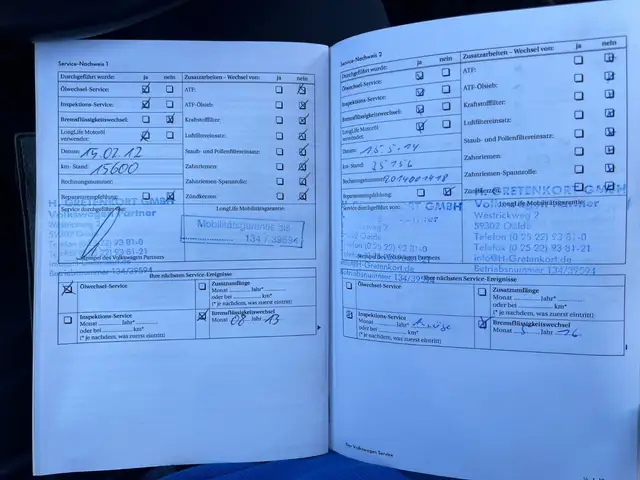 Service-Nachweis 1
Durchgeführt wurde: ja nein
Zusatzarbeiten – Wechsel von: ja nein
Ölwechsel-Service:
ATF:
Inspektions-Service:
ATF-Ölsieb:
Bremsflüssigkeitswechsel:
Kraftstofffilter:
LongLife Motoröl
verwendet:
Luftfiltereinsatz:
Datum:
Staub- und Pollenfiltereinsatz:
km-Stand: 15600
Zahnriemen:
Rechnungsnummer:
Zahnriemen-Spannrolle:
Reparaturempfehlung:
Zündkerzen:
H. GRETENKORT GMBH
Service durchgeführt
LongLife Mobilitätsgarantie:
Volkswagen Partner
Westrickweg 2
59302 Oelde
Telefon (0 25 22) 93 81-0
Telefax (0 25 22) 93 81-21
info@H-Gretenkort.de
Betriebsnummer 134/39594
Mobilitätsgarantie bis
Stempel des Volkswagen Partners
Ihre nächsten Service-Ereignisse
Ölwechsel-Service
Zusatzumfänge
Monat Jahr*
oder bei km*
(* je nachdem, was zuerst eintritt)
Inspektions-Service
Monat Jahr*
oder bei km*
(* je nachdem, was zuerst eintritt)
Bremsflüssigkeitswechsel
Monat 08 Jahr 13
Service-Nachweis 2
Durchgeführt wurde: ja nein
Zusatzarbeiten – Wechsel von: ja nein
Ölwechsel-Service:
ATF:
Inspektions-Service:
ATF-Ölsieb:
Bremsflüssigkeitswechsel:
Kraftstofffilter:
LongLife Motoröl
verwendet:
Luftfiltereinsatz:
Datum: 15.5.14
Staub- und Pollenfiltereinsatz:
km-Stand: 25156
Zahnriemen:
Rechnungsnummer: 2014001418
Zahnriemen-Spannrolle:
Reparaturempfehlung:
Zündkerzen:
H. GRETENKORT GMBH
Service durchgeführt von:
LongLife Mobilitätsgarantie:
Volkswagen Partner
Westrickweg 2
59302 Oelde
Telefon (0 25 22) 93 81-0
Telefax (0 25 22) 93 81-21
info@H-Gretenkort.de
Betriebsnummer 134/39594
Stempel des Volkswagen Partners
Ihre nächsten Service-Ereignisse
Ölwechsel-Service
Zusatzumfänge
Monat Jahr*
oder bei km*
(* je nachdem, was zuerst eintritt)
Inspektions-Service
Monat Jahr*
oder bei km*
(* je nachdem, was zuerst eintritt)
Bremsflüssigkeitswechsel
Monat 5 Jahr 16
Der Volkswagen Service